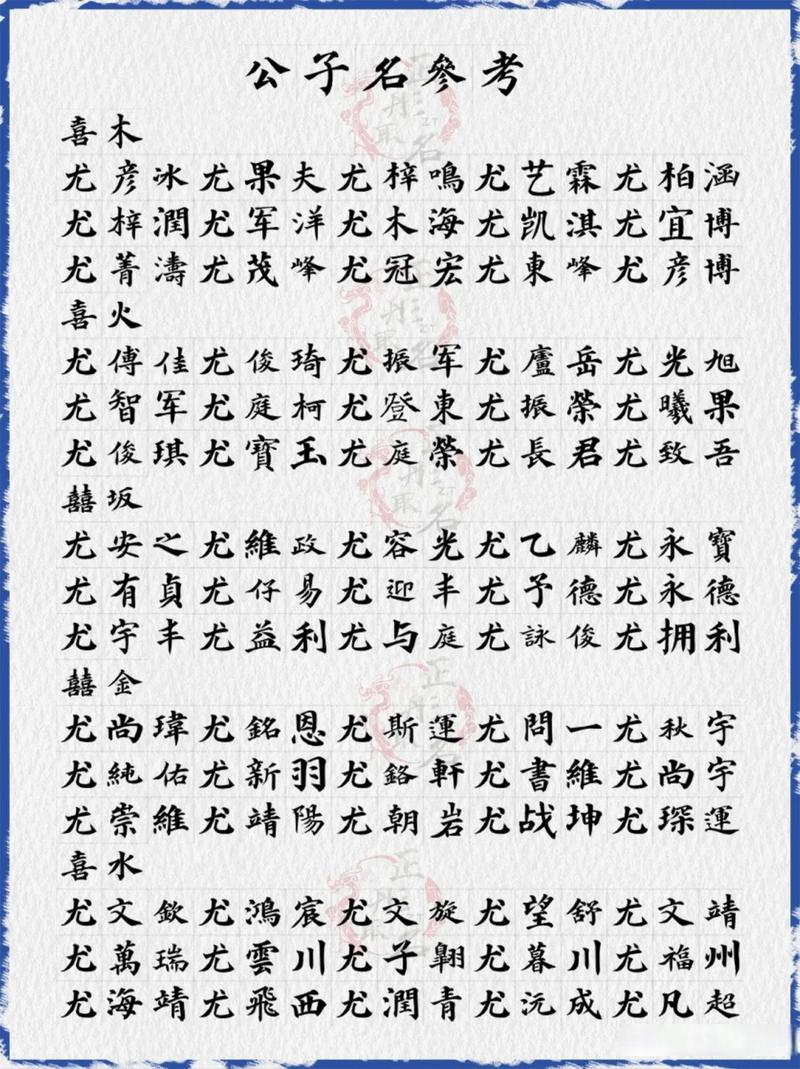 公子名參考
喜木
尤彦冰尤果夫尤梓鳴尤艺霖尤柏涵
尤梓潤尤军洋尤木海尤凯淇尤宜博
尤菁濤尤茂峰尤冠宏尤東峰尤彦博
喜火
尤傅佳尤俊琦尤振军尤廬岳尤光旭
尤智军尤庭柯尤登東尤振榮尤曦果
尤俊琪尤寶玉尤庭榮尤長君尤致吾
囍坂
尤安之尤維政尤容光尤乙麟尤永寶
尤有貞尤仔易尤迎丰尤予德尤永德
尤宇丰尤益利尤与庭尤詠俊尤拥利
囍金
尤尚瑋尤銘恩尤斯運尤問一尤秋宇
尤純佑尤新羽尤鉻軒尤書維尤尚宇
尤崇維尤靖陽尤朝岩尤战坤尤琛運
喜水
尤文欽尤鴻宸尤文旋尤望舒尤文靖
尤萬瑞尤雲川尤子翺尤暮川尤福州
尤海靖尤飛西尤潤青尤沅成尤凡超